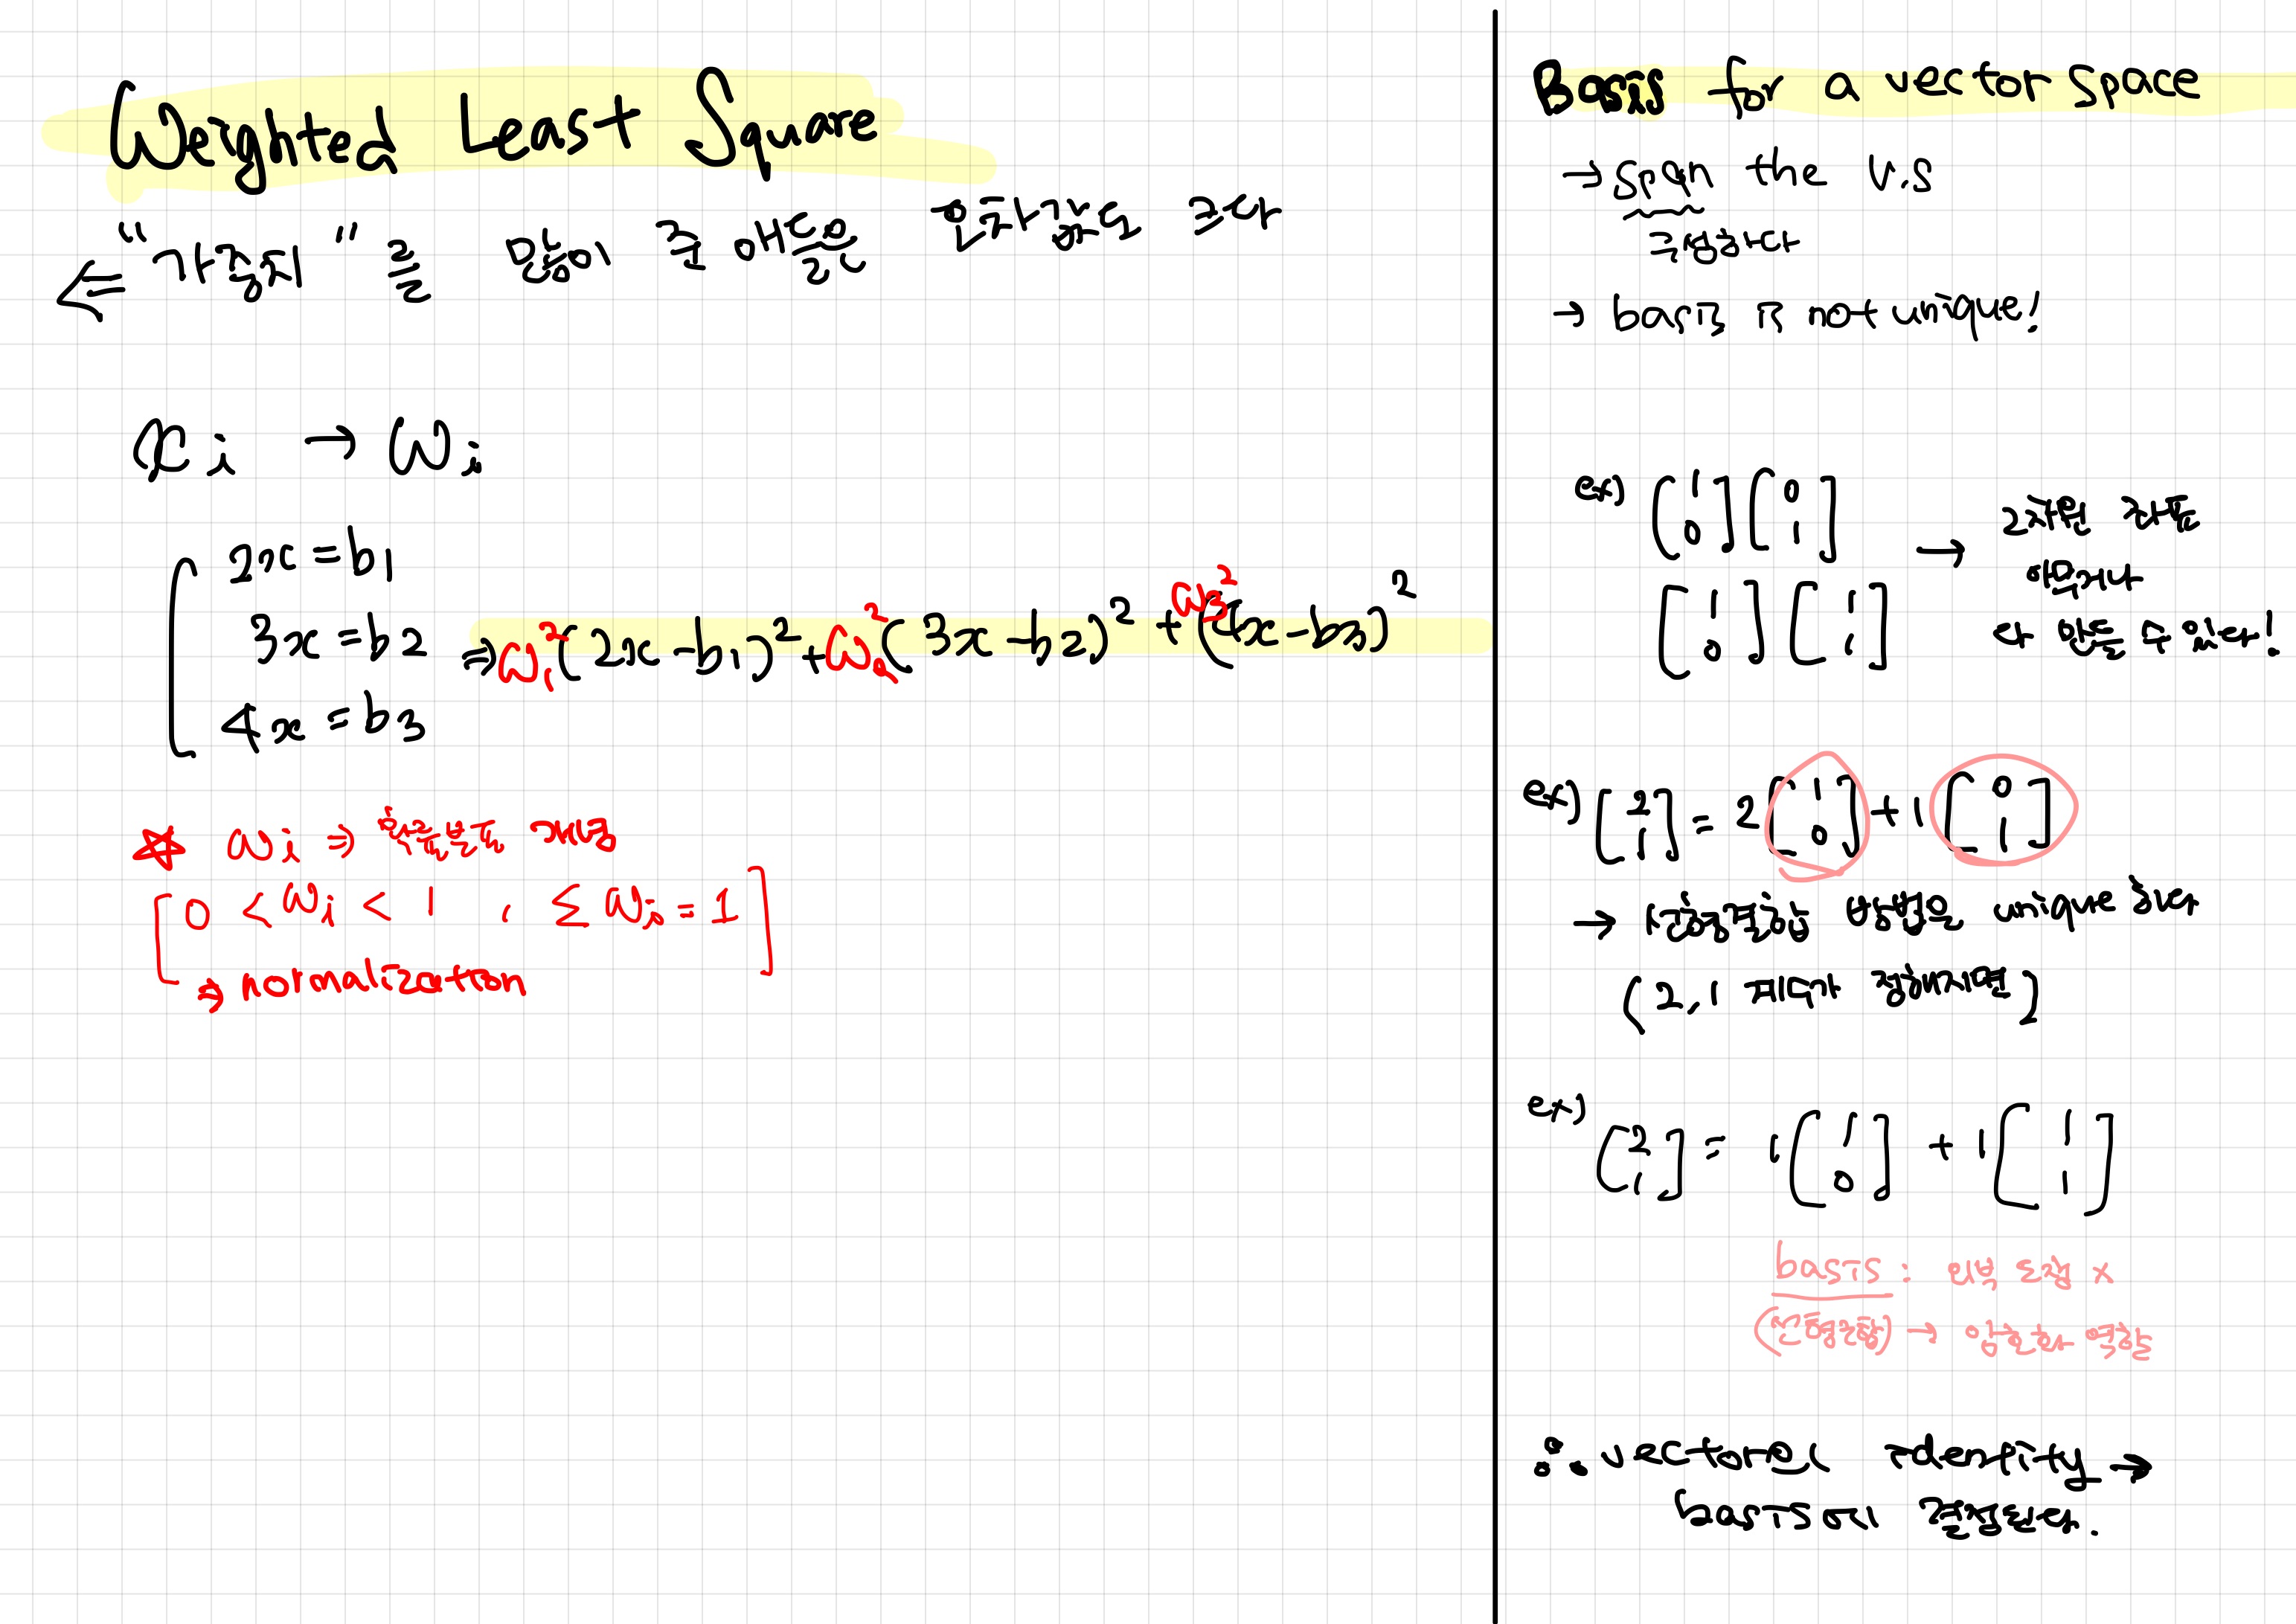 Weighted Least Square
⇐ "가중치" 를 많이 준 애들을
x i → W i
2x = b1
3x = b2 ⇒ W1²(2x - b1)² + W2²(3x - b2)² + W3²(4x - b3)²
4x = b3
☆ Wi ⇒ 확률분포 개념
[ 0 < Wi < 1 , Σ Wi = 1 ]
⇒ normalization
Basis for a vector space
→ span the V.S
구성하다
→ basis is not unique!
ex) [1 0] [0 1] → 2차원 좌표
[1 0] [1 1] 어떤거나
다 만들 수 있다!
ex) [2 1] = 2[1 0] + 1[0 1]
→ 방법은 unique
(2, 1 정해지면)
ex) [2 1] = 1[1 0] + 1[1 1]
basis : 외부 노출 x
(선형결합) → 암호화 역할
∴ vector의 identity →
basis에 결정된다.